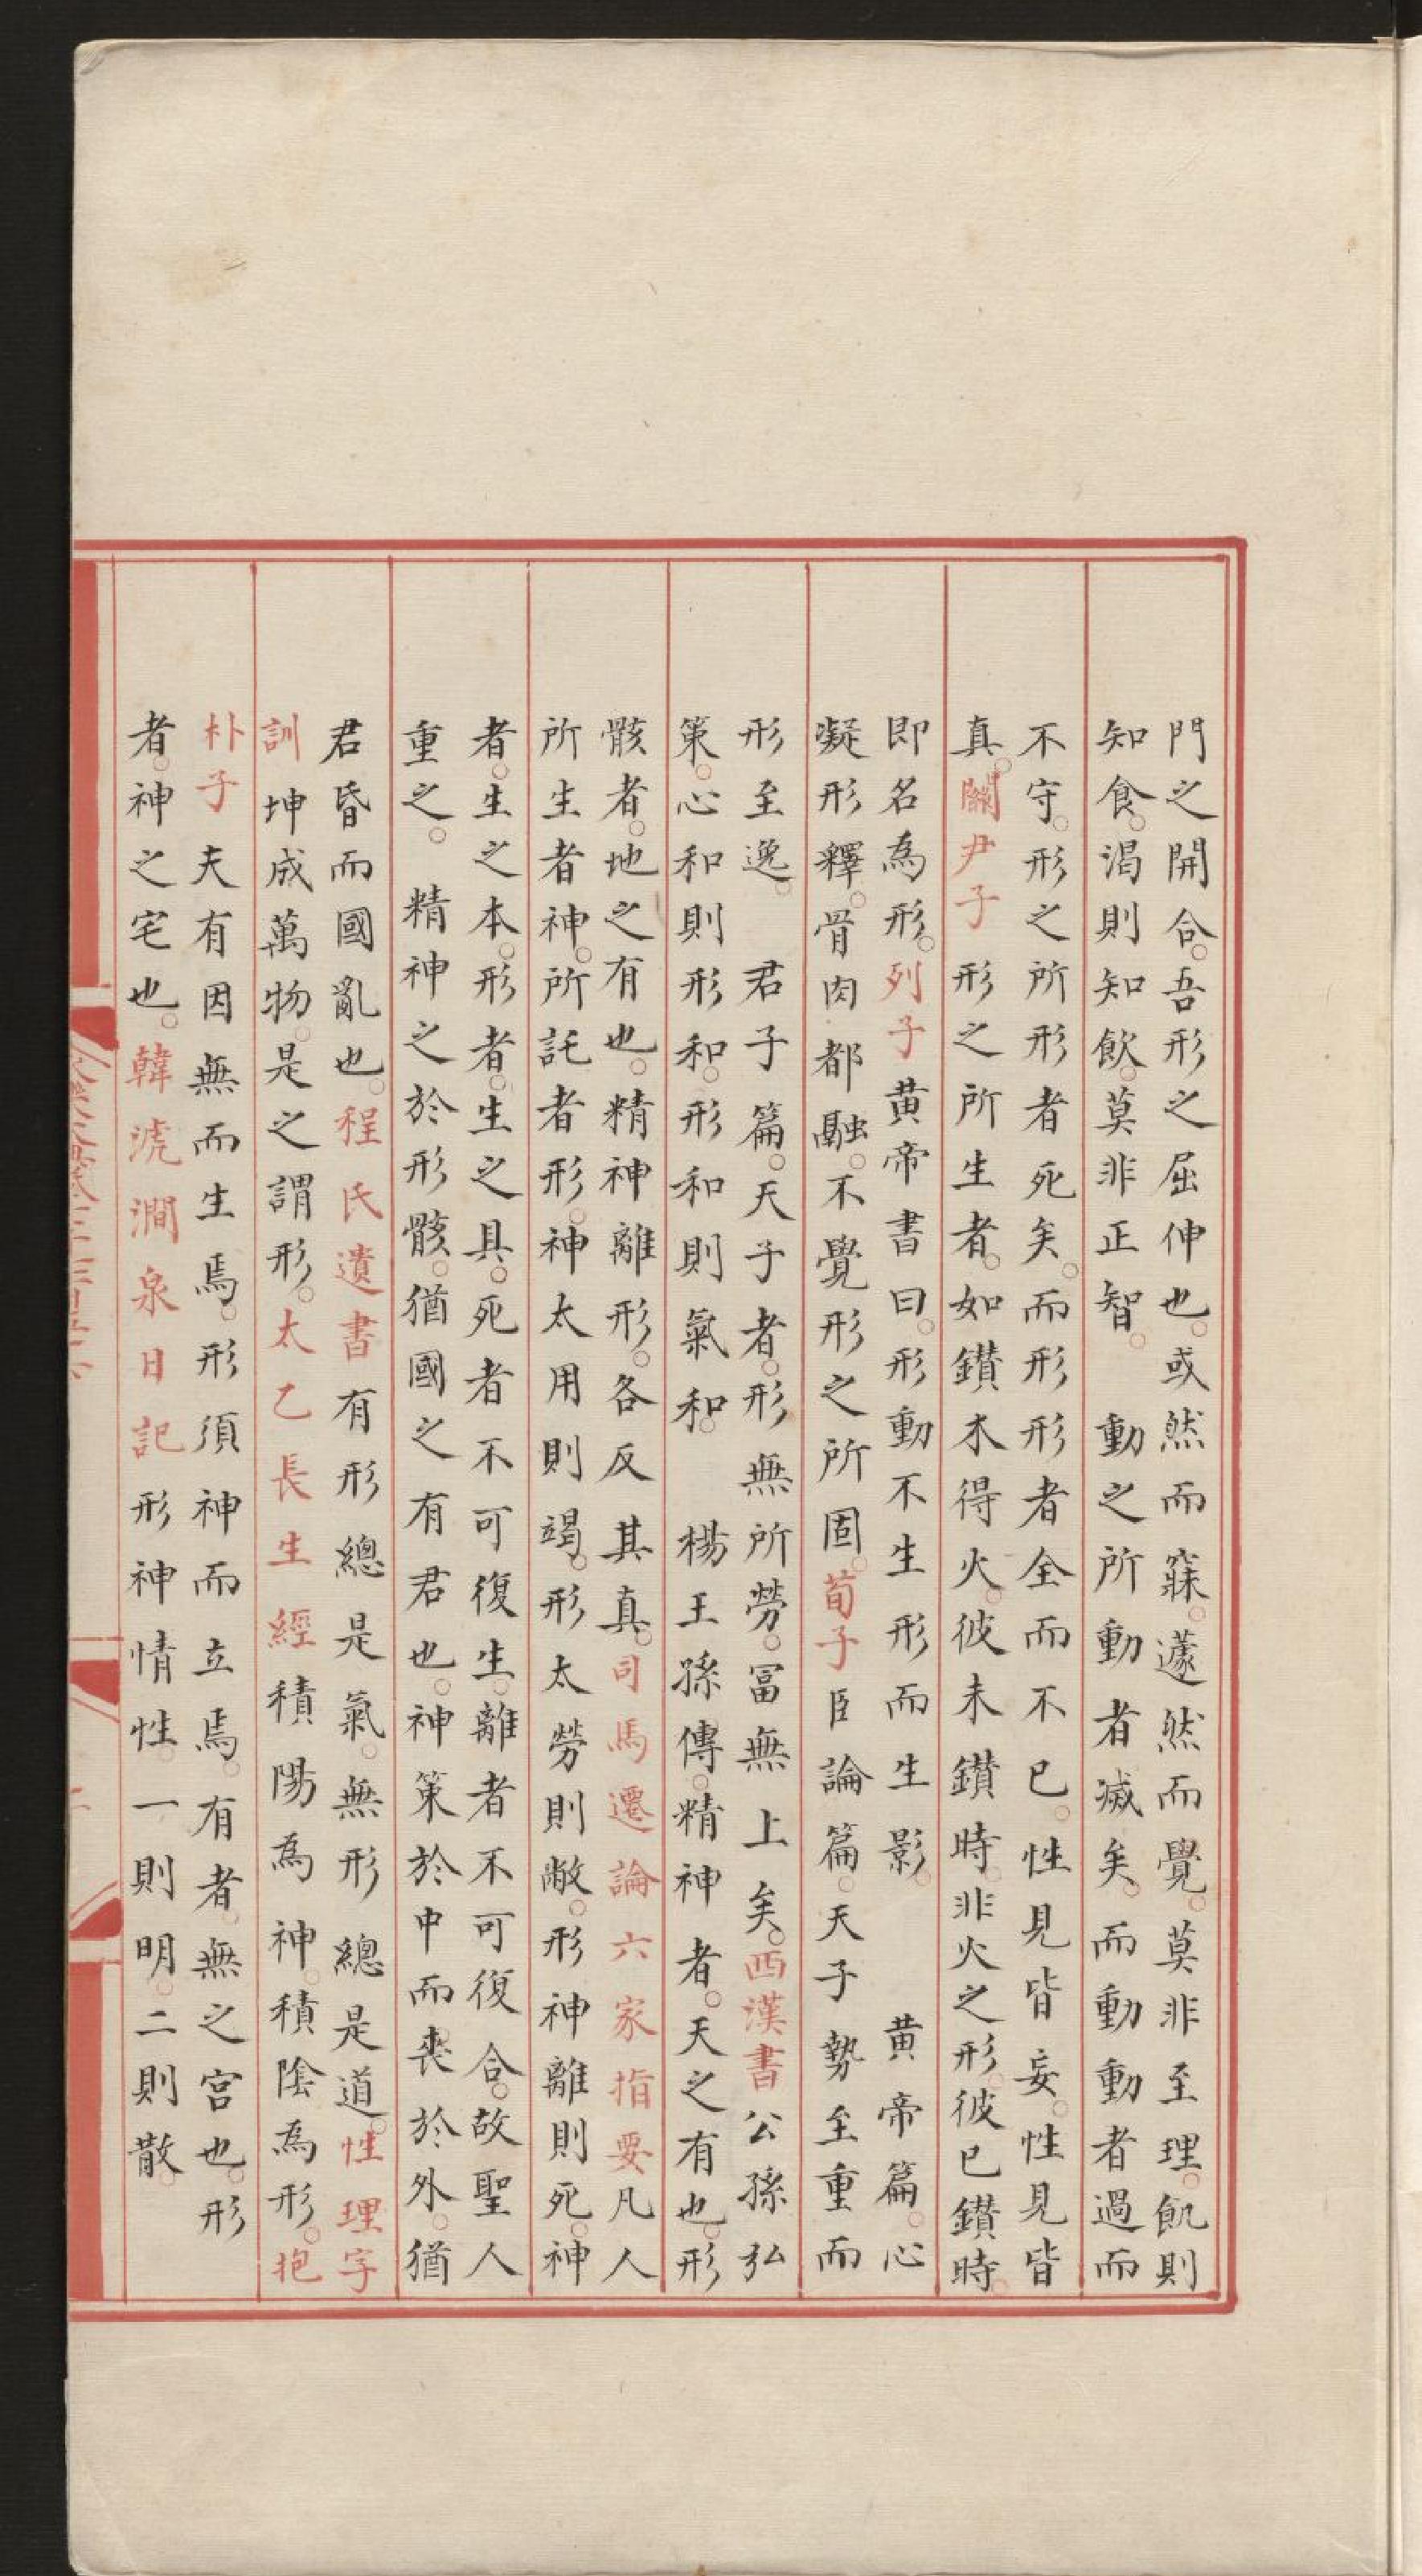 門之開合。吾形之屈伸也。或然而寐。蘧然而覺。莫非至理。飢則
知食。渴則知飲。莫非正智。 動之所動者滅矣。而動動者過而
不守。形之所形者死矣。而形形者全而不已。性見皆妄。性見皆
真。關尹子形之所生者。如鑚木得火。彼未鑚時。非火之形。彼已鑚時。
即名為形。列子黄帝書曰。形動不生形而生影。 黄帝篇。心
凝形釋。骨肉都融。不覺形之所固。荀子臣論篇。天子勢至重而
形至逸。 君子篇。天子者。形無所勞。冨無上矣。西漢書公孫弘
策。心和則形和。形和則氣和。 楊王孫傳。精神者。天之有也。形
骸者。地之有也。精神離形。各反其真。司馬遷論六家指要凡人
所生者神。所託者形。神太用則竭。形太勞則敝。形神離則死。神
者。生之本。形者。生之具。死者不可復生。離者不可復合。故聖人
重之。 精神之於形骸。猶國之有君也。神策於中而喪於外。猶
君昏而國亂也。程氏遺書有形總是氣。無形總是道。性理字
訓坤成萬物。是之謂形。太乙長生經積陽為神。積陰為形。抱
朴子夫有因無而生焉。形須神而立焉。有者。無之宫也。形
者。神之宅也。韓淲澗泉日記形神情性。一則明。二則散。